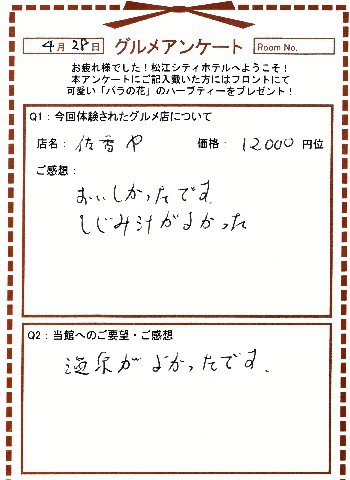 4月28日 グルメアンケート Room No.
お疲れ様でした！松江シティホテルへようこそ！
本アンケートにご記入戴いた方にはフロントにて
可愛い「バラの花」のハーブティーをプレゼント！
Q1：今回体験されたグルメ店について
店名： 佐香や 価格： 12000 円位
ご感想：
おいしかったです
しじみ汁がよかった
Q2：当館へのご要望・ご感想
温泉がよかったです。